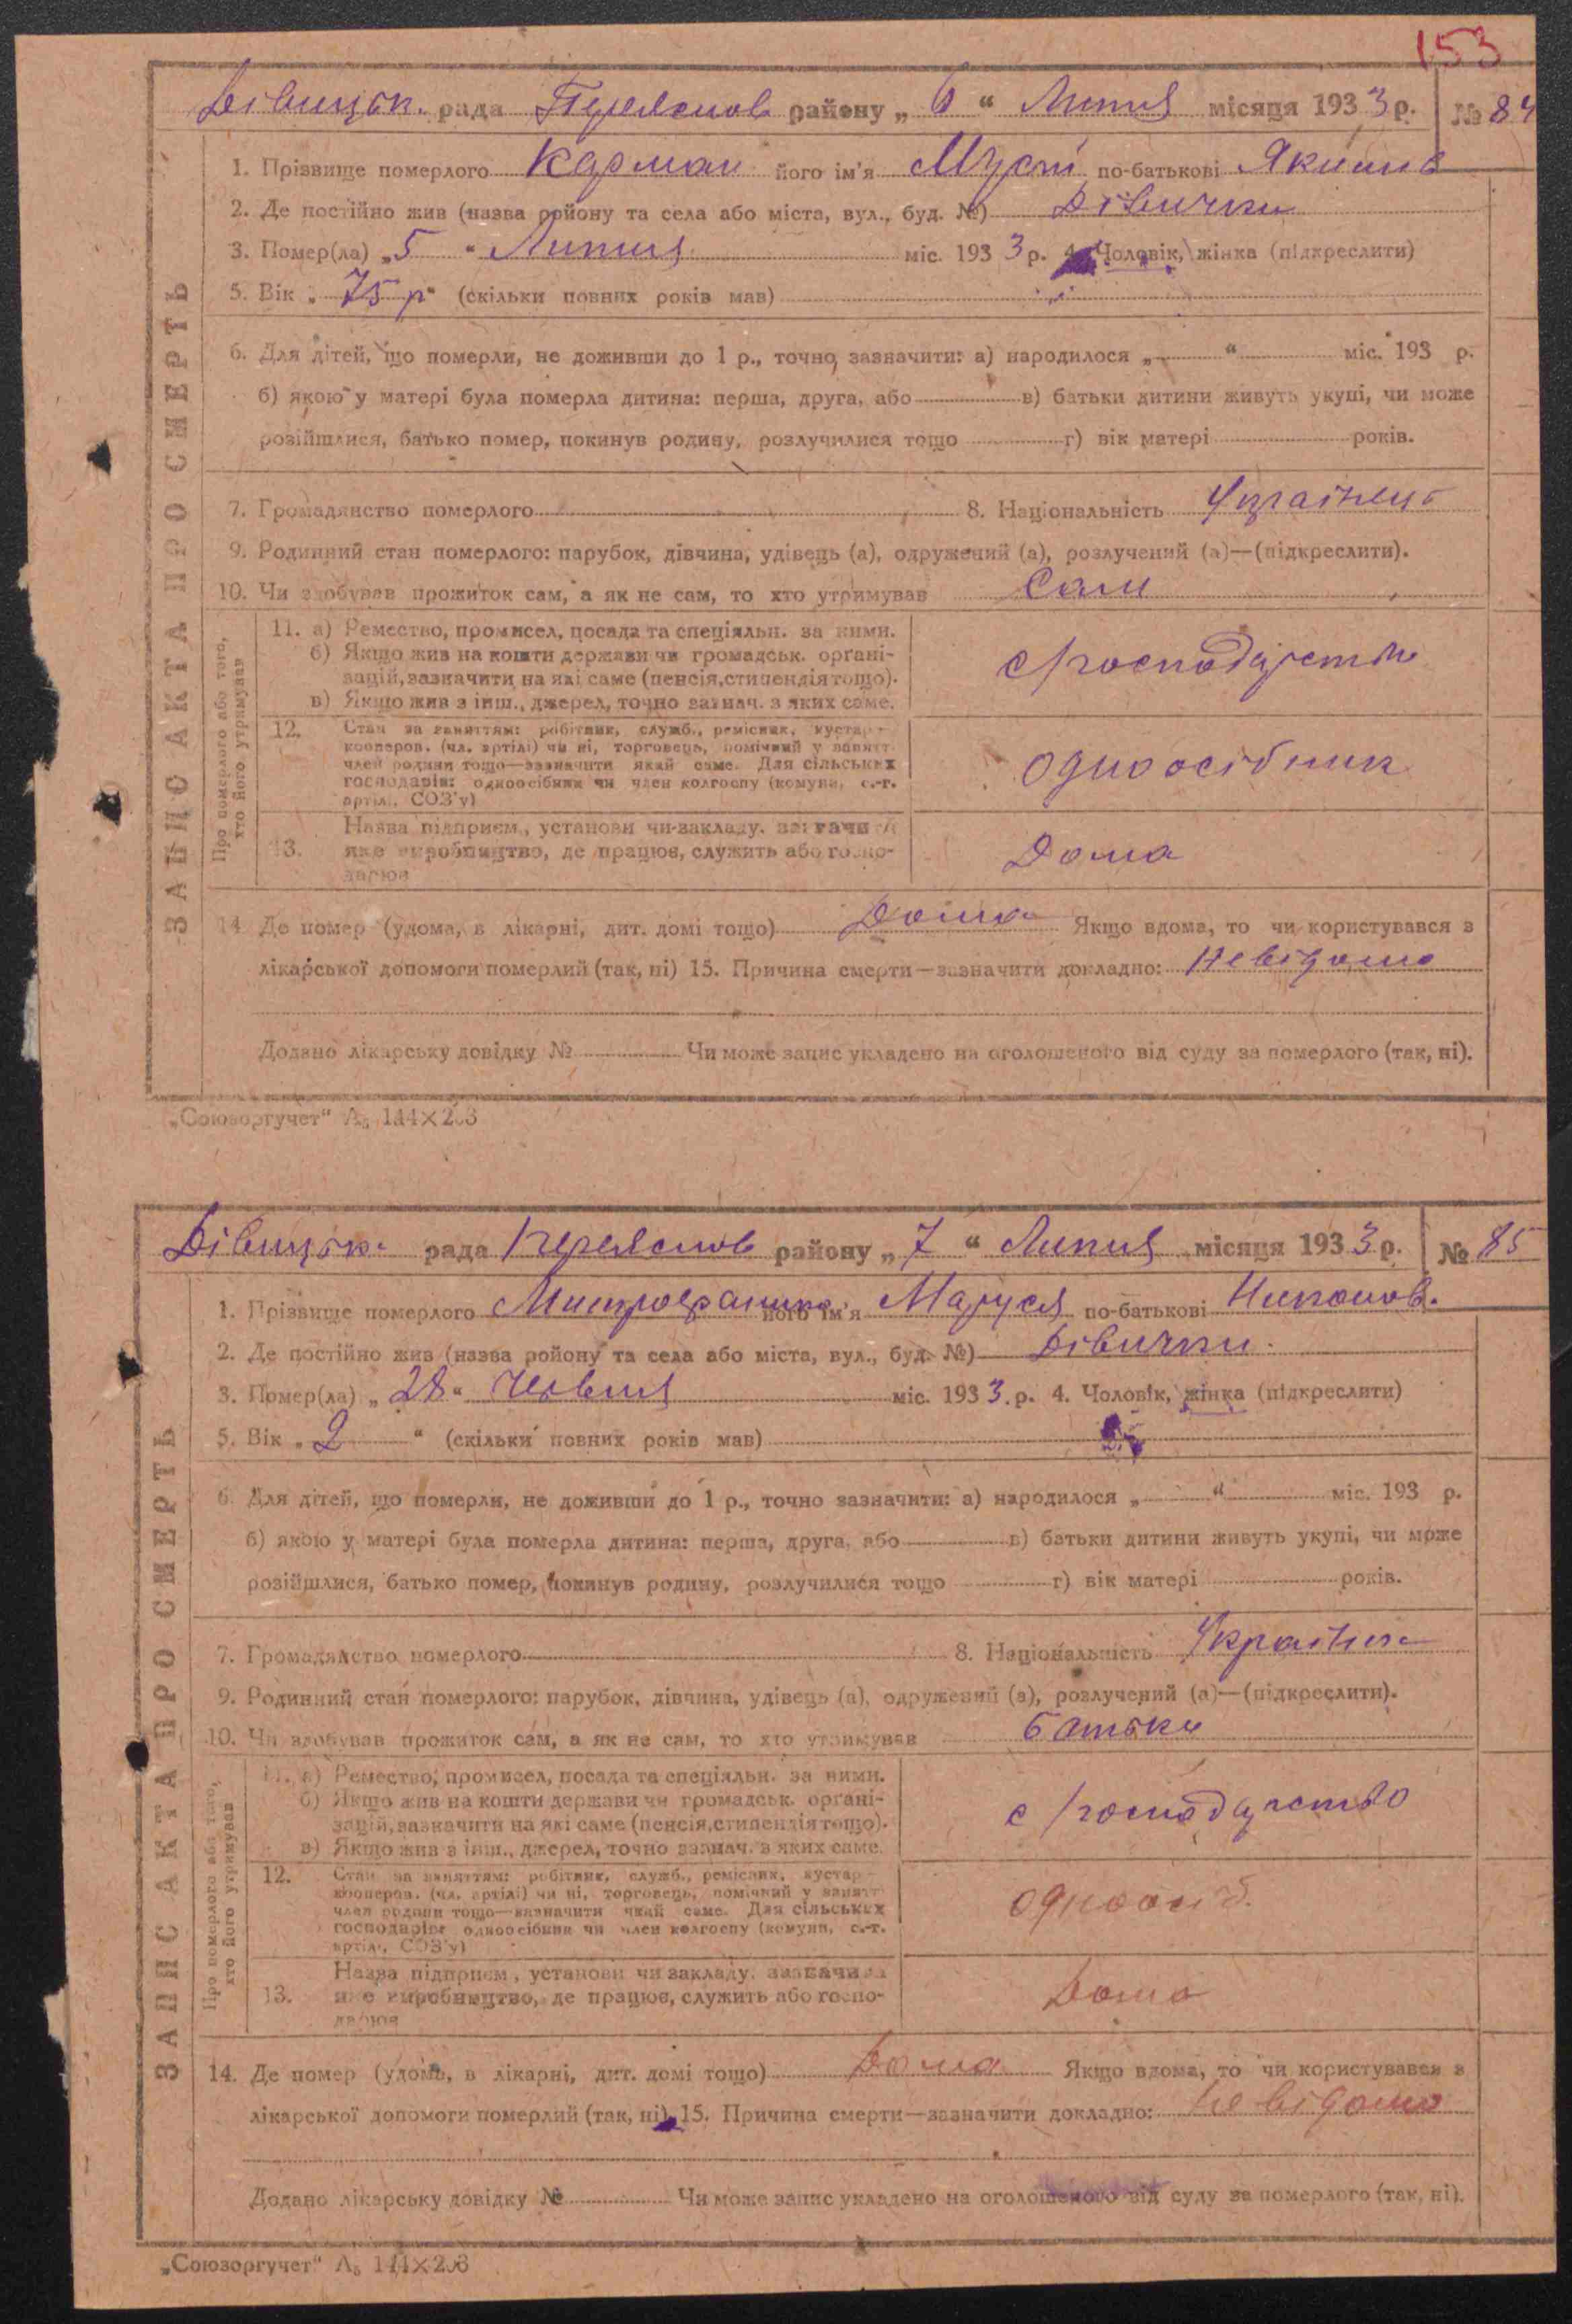 153
Дівицьк. рада Переяслов району „ 6 “ Липня місяця 193 3 р. № 84
1. Прізвище померлого Карман його ім'я Мусій по-батькові Якимів
2. Де постійно жив (назва ройону та села або міста, вул., буд. №) Дівички
3. Помер(ла) „ 5 “ Липня міс. 193 3 р. 4. Чоловік, жінка (підкреслити)
5. Вік „ 75 р “ (скільки повних років мав)
6. Для дітей, що померли, не доживши до 1 р., точно зазначити: а) народилося „ “ міс. 193 р.
б) якою у матері була померла дитина: перша, друга, або в) батьки дитини живуть укупі, чи може
розійшлися, батько помер, покинув родину, розлучилися тощо г) вік матері років.
7. Громадянство померлого 8. Національність Українець
9. Родинний стан померлого: парубок, дівчина, удівець (а), одружений (а), розлучений (а)—(підкреслити).
10. Чи здобував прожиток сам, а як не сам, то хто утримував Сам
11. а) Ремество, промисел, посада та спеціяльн. за ними.
б) Якщо жив на кошти держави чи громадськ. органі-
зацій, зазначити на які саме (пенсія, стипендія тощо).
в) Якщо жив з інш., джерел, точно зазнач. з яких саме.
с/господарство
12. Стан за заняттям: робітник, служб., ремісник, кустар-
кооперов. (чл. артілі) чи ні, торговець, помічний у занятт
член родини тощо—зазначити який саме. Для сільських
господарів: одноосібник чи член колгоспу (комуни, с.-г.
артілі, СОЗ'у)
одноосібник
13. Назва підприєм., установи чи закладу. зазначити
яке виробництво, де працює, служить або госпо-
дарює
Дома
14 Де помер (удома, в лікарні, дит. домі тощо) Дома Якщо вдома, то чи користувався з
лікарської допомоги померлий (так, ні) 15. Причина смерти—зазначити докладно: Невідомо
Додано лікарську довідку № Чи може запис укладено на оголошеного від суду за померлого (так, ні).
ЗАПИС АКТА ПРО СМЕРТЬ
Про померлого або того,
хто його утримував
„Союзоргучет“ А₅ 144×203
Дівицьк. рада Переяслов району „ 7 “ Липня місяця 193 3 р. № 85
1. Прізвище померлого Митрофаник його ім'я Маруся по-батькові Никонов.
2. Де постійно жив (назва ройону та села або міста, вул., буд. №) Дівички.
3. Помер(ла) „ 28 “ Червня міс. 193 3 р. 4. Чоловік, жінка (підкреслити)
5. Вік „ 2 “ (скільки повних років мав)
6. Для дітей, що померли, не доживши до 1 р., точно зазначити: а) народилося „ “ міс. 193 р.
б) якою у матері була померла дитина: перша, друга, або в) батьки дитини живуть укупі, чи може
розійшлися, батько помер, покинув родину, розлучилися тощо г) вік матері років.
7. Громадянство померлого 8. Національність Українка
9. Родинний стан померлого: парубок, дівчина, удівець (а), одружений (а), розлучений (а)—(підкреслити).
10. Чи здобував прожиток сам, а як не сам, то хто утримував батьки
11. а) Ремество, промисел, посада та спеціяльн. за ними.
б) Якщо жив на кошти держави чи громадськ. органі-
зацій, зазначити на які саме (пенсія, стипендія тощо).
в) Якщо жив з інш., джерел, точно зазнач. з яких саме.
с/господарство
12. Стан за заняттям: робітник, служб., ремісник, кустар-
кооперов. (чл. артілі) чи ні, торговець, помічний у занятт
член родини тощо—зазначити який саме. Для сільських
господарів: одноосібник чи член колгоспу (комуни, с.-г.
артілі, СОЗ'у)
одноосіб.
13. Назва підприєм., установи чи закладу. зазначити
яке виробництво, де працює, служить або госпо-
дарює
Дома
14. Де помер (удома, в лікарні, дит. домі тощо) Дома Якщо вдома, то чи користувався з
лікарської допомоги померлий (так, ні) 15. Причина смерти—зазначити докладно: Невідомо
Додано лікарську довідку № Чи може запис укладено на оголошеного від суду за померлого (так, ні).
ЗАПИС АКТА ПРО СМЕРТЬ
Про померлого або того,
хто його утримував
„Союзоргучет“ А₅ 144×203